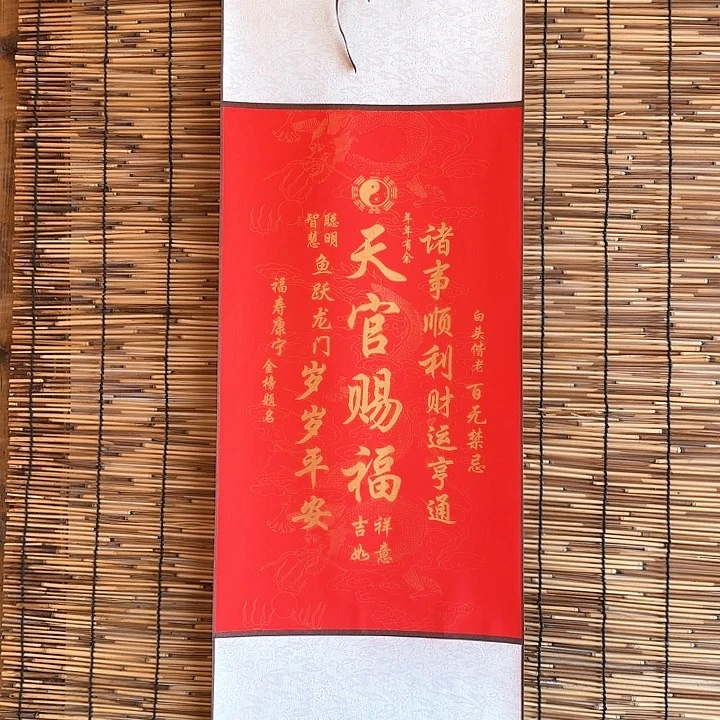 白头偕老 百无禁忌
诸事顺利财运亨通
年年有余
天官赐福
吉祥如意
聪明智慧
鱼跃龙门
岁岁平安
福寿康宁 金榜题名